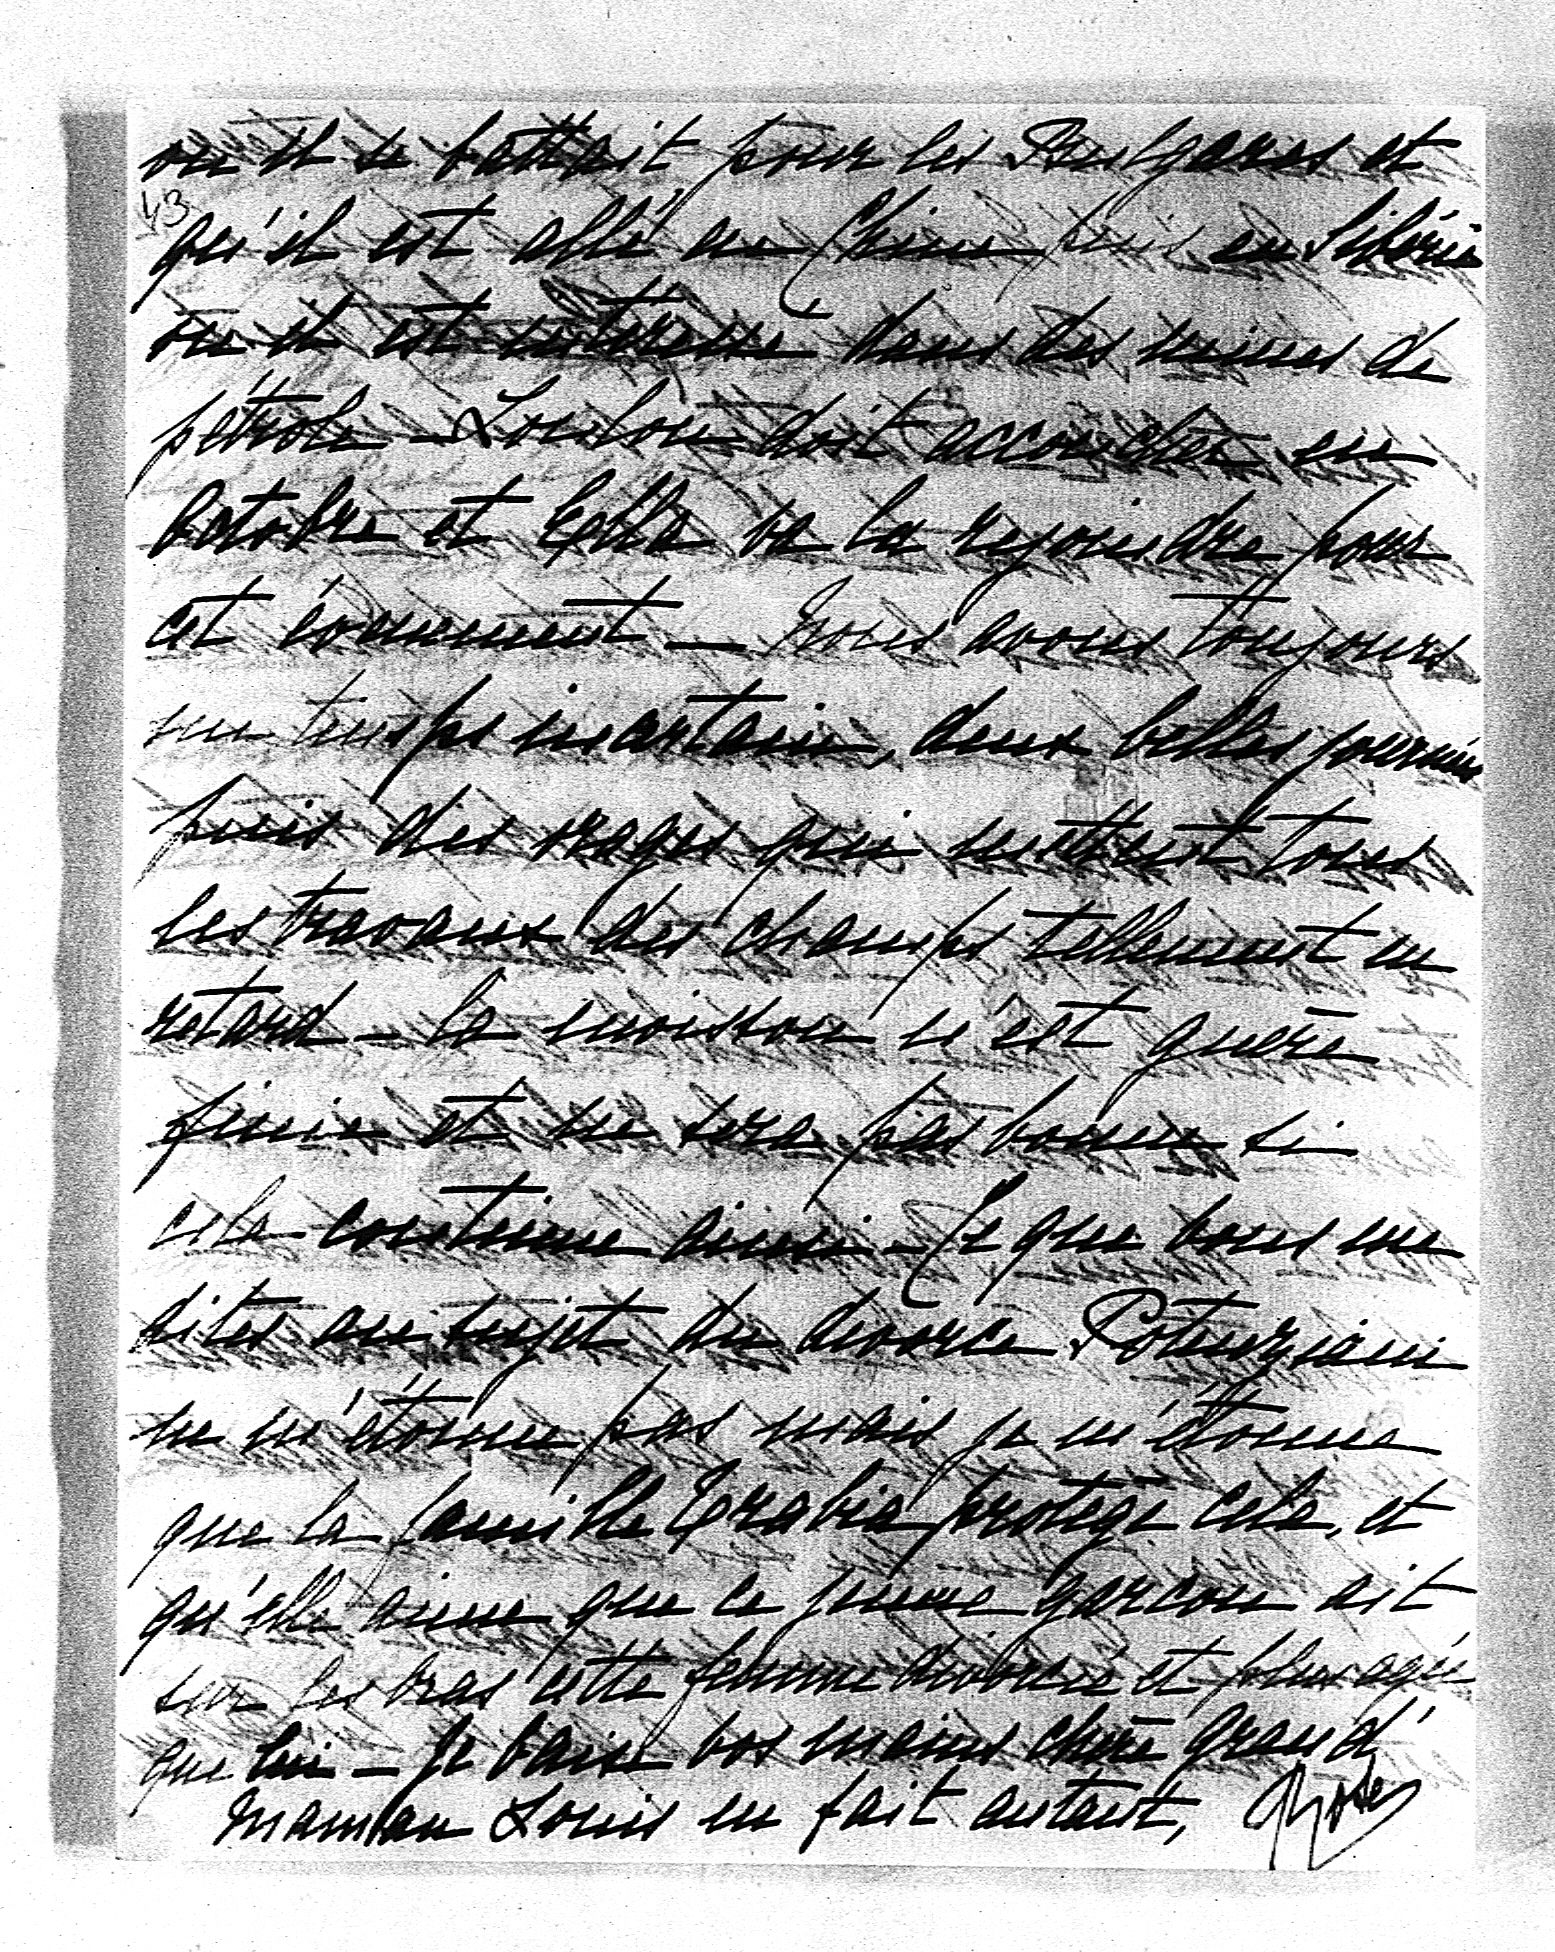 où il se battait pour les Bulgares et
43
qu'il est allé en Chine puis en Sibérie
où il est intéressé dans des mines de
pétrole – Loulou doit accoucher en
Octobre et Ella va la rejoindre pour
cet évènement – Nous avons toujours
un temps incertain, deux belles journées
puis des orages qui mettent tous
les travaux des champs tellement en
retard – la moisson n'est guère
finie et ne sera pas bonne si
cela continue ainsi – Ce que vous me
dites au sujet du divorce Potenziani
ne m'étonne pas mais je m'étonne
que la famille Trabia protège cela, et
qu'elle aime que ce jeune garçon ait
sur les bras cette femme divorcée et plus agée
que lui – Je baise vos mains chère grand'
maman Louis en fait autant,